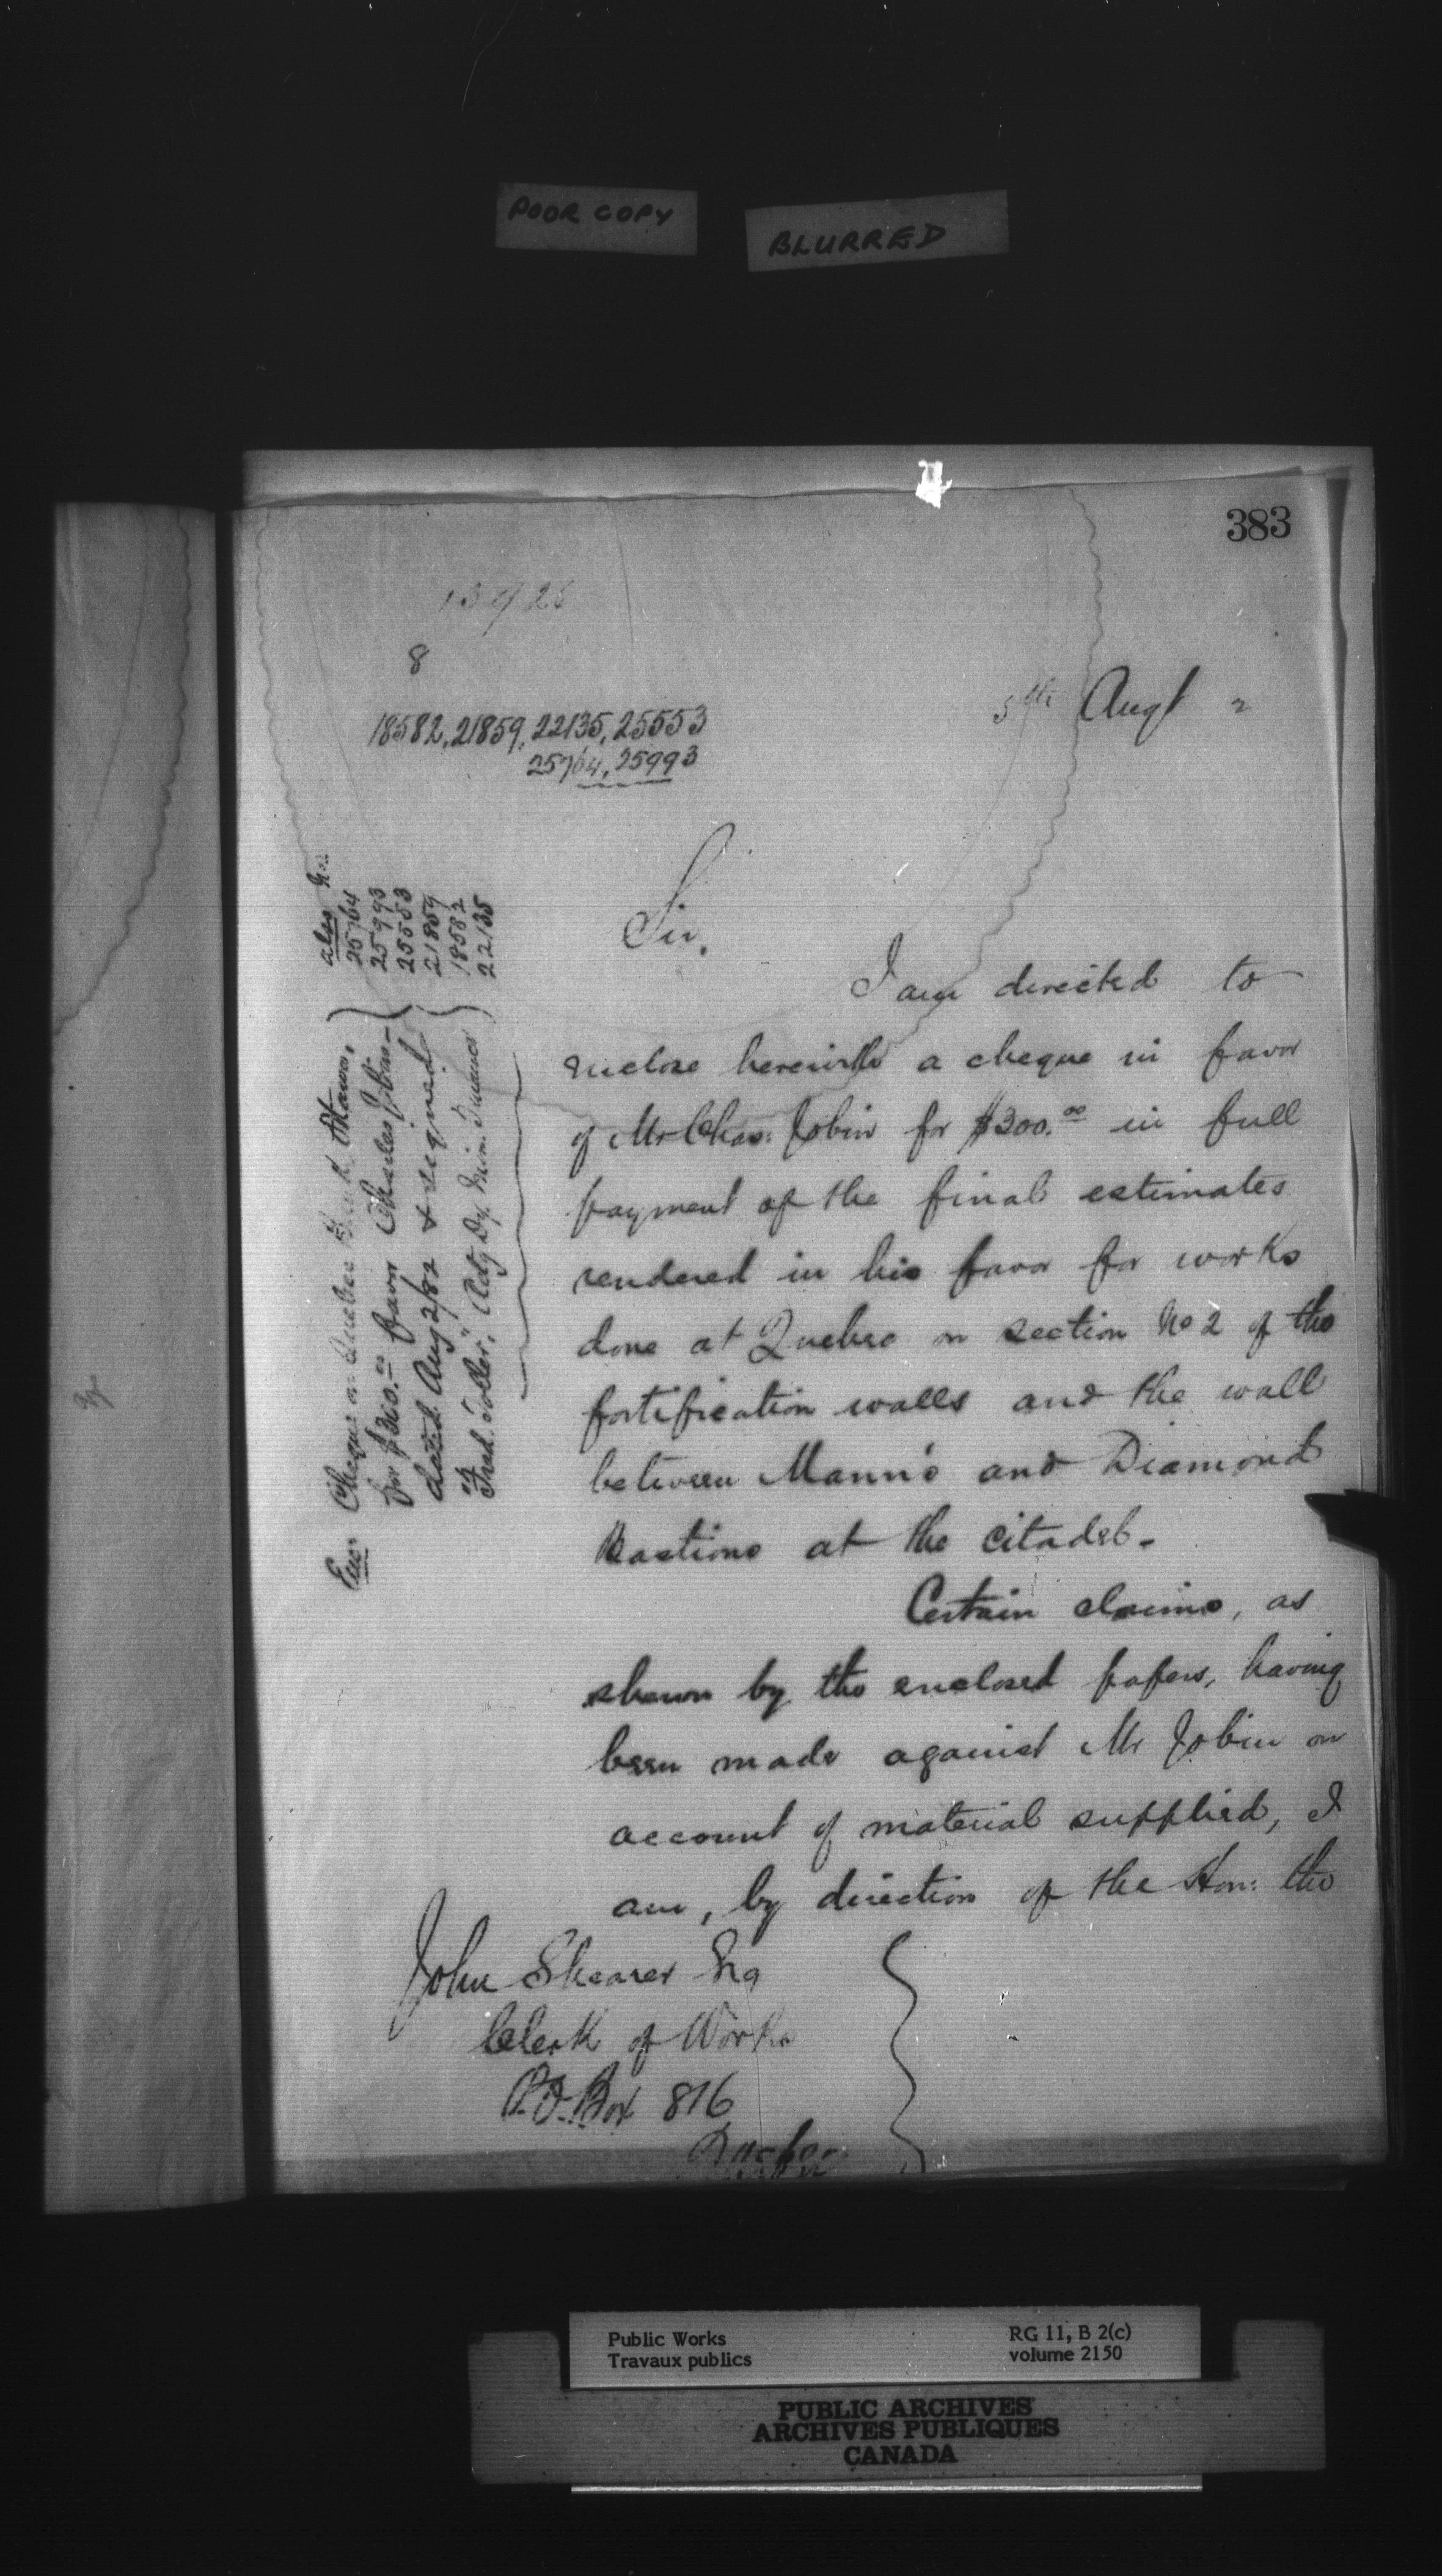 POOR COPY
BLURRED
383
8
18582, 21859, 22135, 25553
25764, 25993
5th Augt 2
Sir,
I am directed to
enclose herewith a cheque in favor
of Mr Chas: Jobin for $300.00 in full
payment of the final estimates
rendered in his favor for works
done at Quebec on section No 2 of the
fortification walls and the wall
between Mann's and Diamond
Bastions at the citadel -
Certain claims, as
shewn by the enclosed papers, having
been made against Mr Jobin on
account of material supplied, I
am, by direction of the Hon: the
John Shearer Esq
Clerk of Works
P.O. Box 816
Quebec
Cheque on Quebec Bank Ottawa,
for $300.— favor Charles Jobin —
dated Aug 2/82 & signed
Fred. Toller, Actg Dy. Min. Finance
also Nos
25764
25993
25553
21859
18582
22135
Public Works
Travaux publics
RG 11, B 2(c)
volume 2150
PUBLIC ARCHIVES
ARCHIVES PUBLIQUES
CANADA